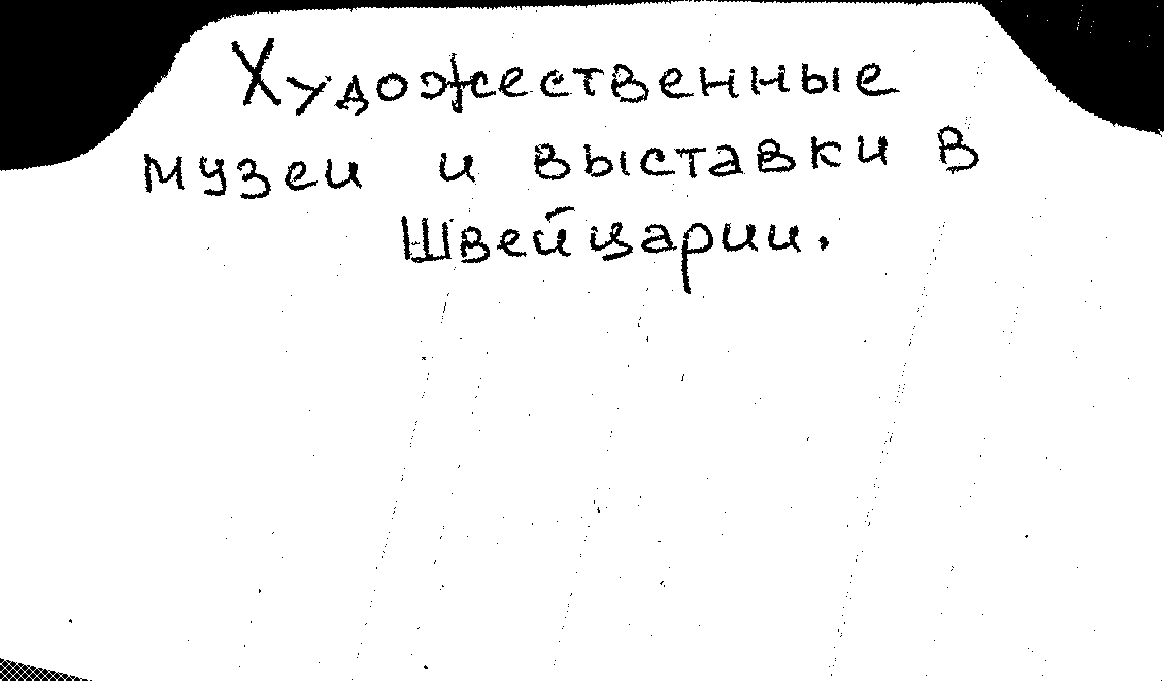 Художественные
музеи и выставки в
Швейцарии.